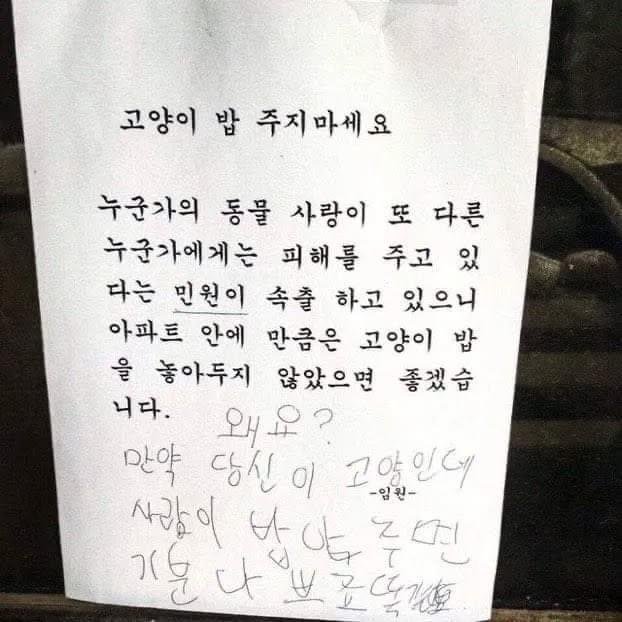 고양이 밥 주지마세요
누군가의 동물 사랑이 또 다른
누군가에게는 피해를 주고 있
다는 민원이 속출 하고 있으니
아파트 안에 만큼은 고양이 밥
을 놓아두지 않았으면 좋겠습
니다.
왜요?
만약 당신이 고양인데
-임원-
사람이 밥안 주면
기분 나쁘죠 똑같